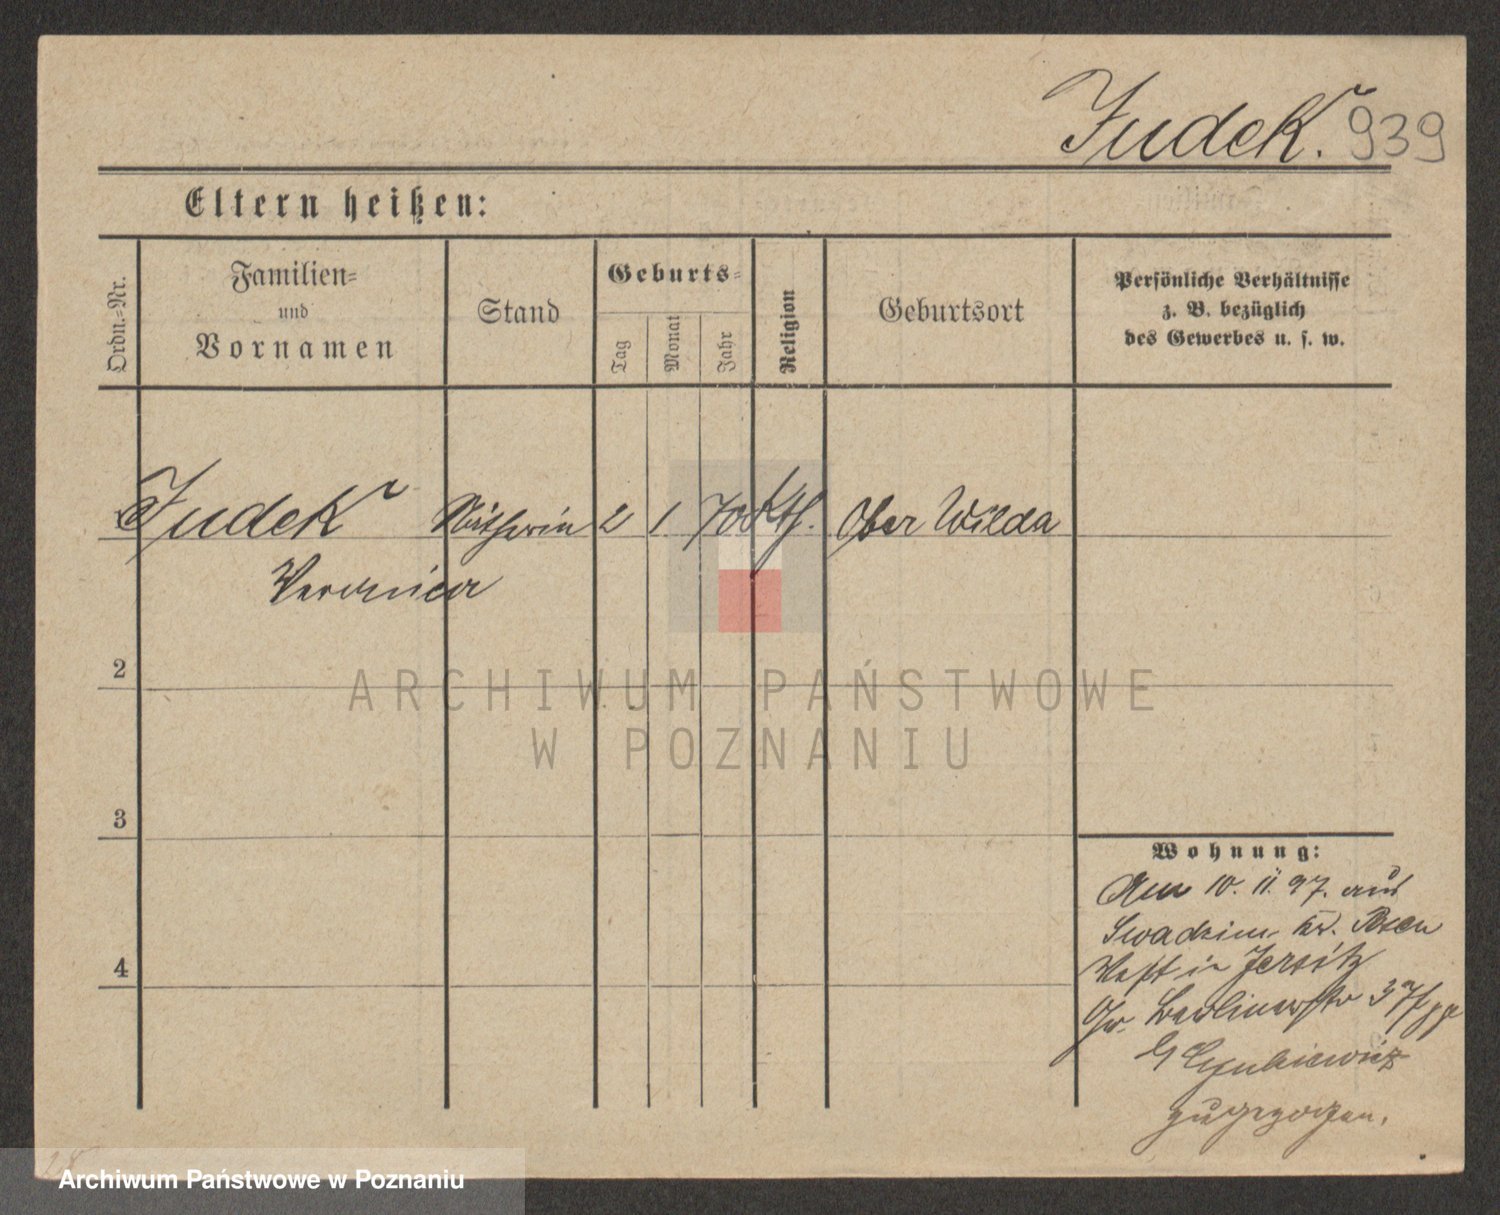 Judek. 939
Eltern heißen:
Ordn.=Nr.
Familien=
und
Vornamen
Stand
Geburts=
Tag
Monat
Jahr
Religion
Geburtsort
Persönliche Verhältnisse
z. B. bezüglich
des Gewerbes u. s. w.
Judek Nätherin 2 1. 70 kth. Ober Wilda
Veronica
2
3
4
Wohnung:
Am 10. 11. 97. aus
Swadzim Kr. Posen
West in Jersitz
Gr. Berlinerstr 37
zugezogen.
ARCHIWUM PAŃSTWOWE
W POZNANIU
Archiwum Państwowe w Poznaniu